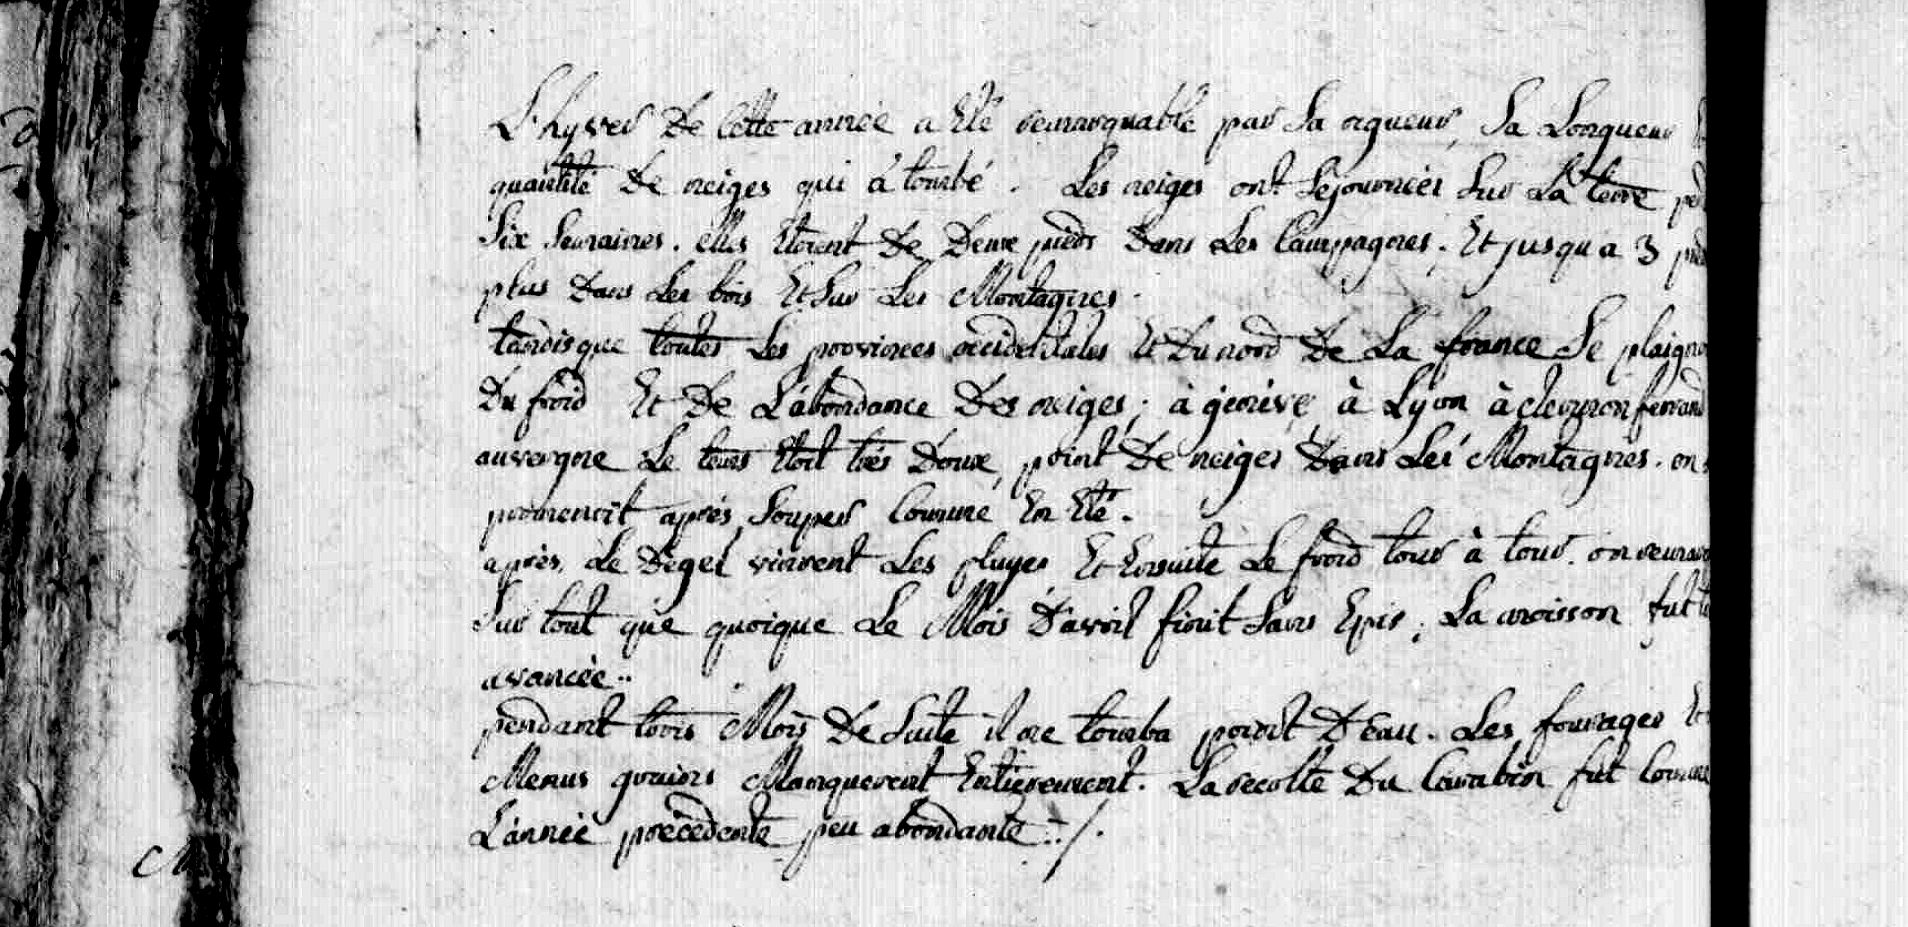 L'hyver de cette année a été remarquable par sa rigueur, sa longueur
quantité de neiges qui a tombé. Les neiges ont séjournées sur la terre
six semaines. elles étoient de deux pieds dans les campagnes. Et jusqu'a 3
plus dans les bois et sur les Montagnes.
tandisque toutes les provinces occidentales et du nord de la france se
du froid et de l'abondance des neiges; à genève, à Lyon à clermon ferrand
auvergne le tems étoit très doux, point de neiges dans les Montagnes. on
promenoit après souper comme en été.
après le dégel vinrent les pluyes et ensuite le froid tour à tour. on
sur tout que quoique le Mois d'avril finit sans épis; la moisson fut
avancée..
pendant trois Mois de suite il ne tomba point d'eau. Les fourages et
Menus grains Manquerent entierement. La recolte du carabin fut comme
l'année précédente peu abondante ./.